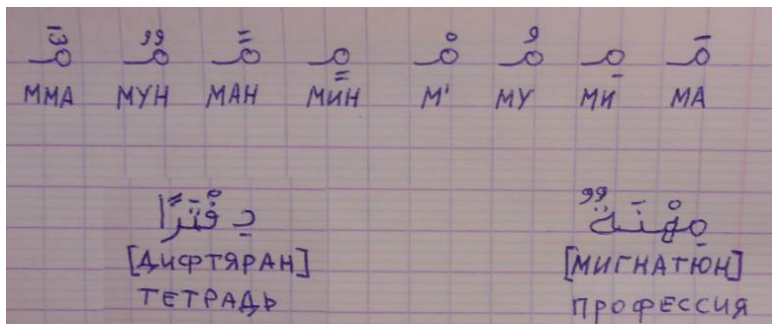 مَ مِ مُ مْ مٍ مً مٌ مَّ
ММА МУН МАН МИН М' МУ МИ МА
دِفْتَرًا
[ДИФТЯРАН]
ТЕТРАДЬ
مِهْنَةٌ
[МИГНАТЮН]
ПРОФЕССИЯ